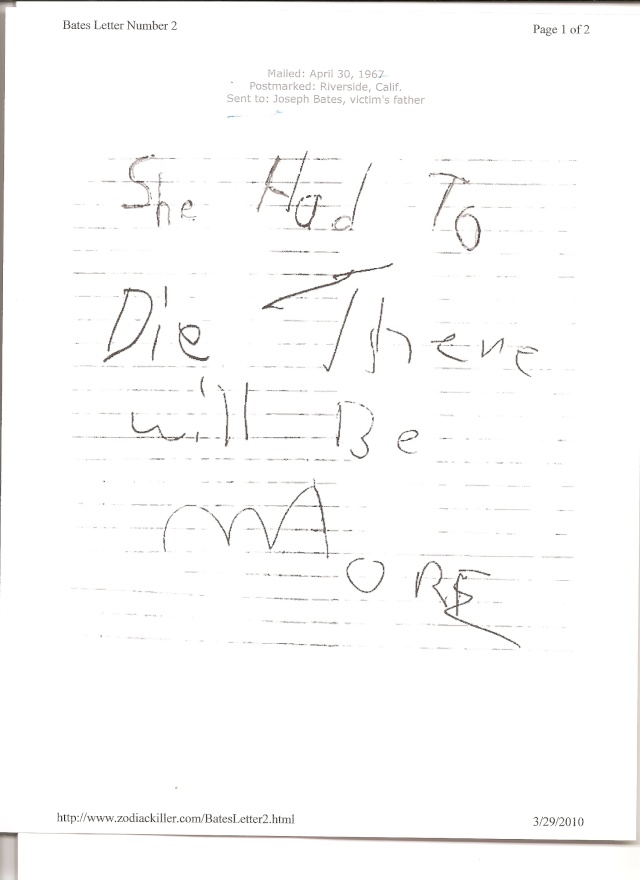 Bates Letter Number 2
Page 1 of 2
Mailed: April 30, 1967
Postmarked: Riverside, Calif.
Sent to: Joseph Bates, victim's father
She Had To
Die There
will Be
mORE
http://www.zodiackiller.com/BatesLetter2.html
3/29/2010